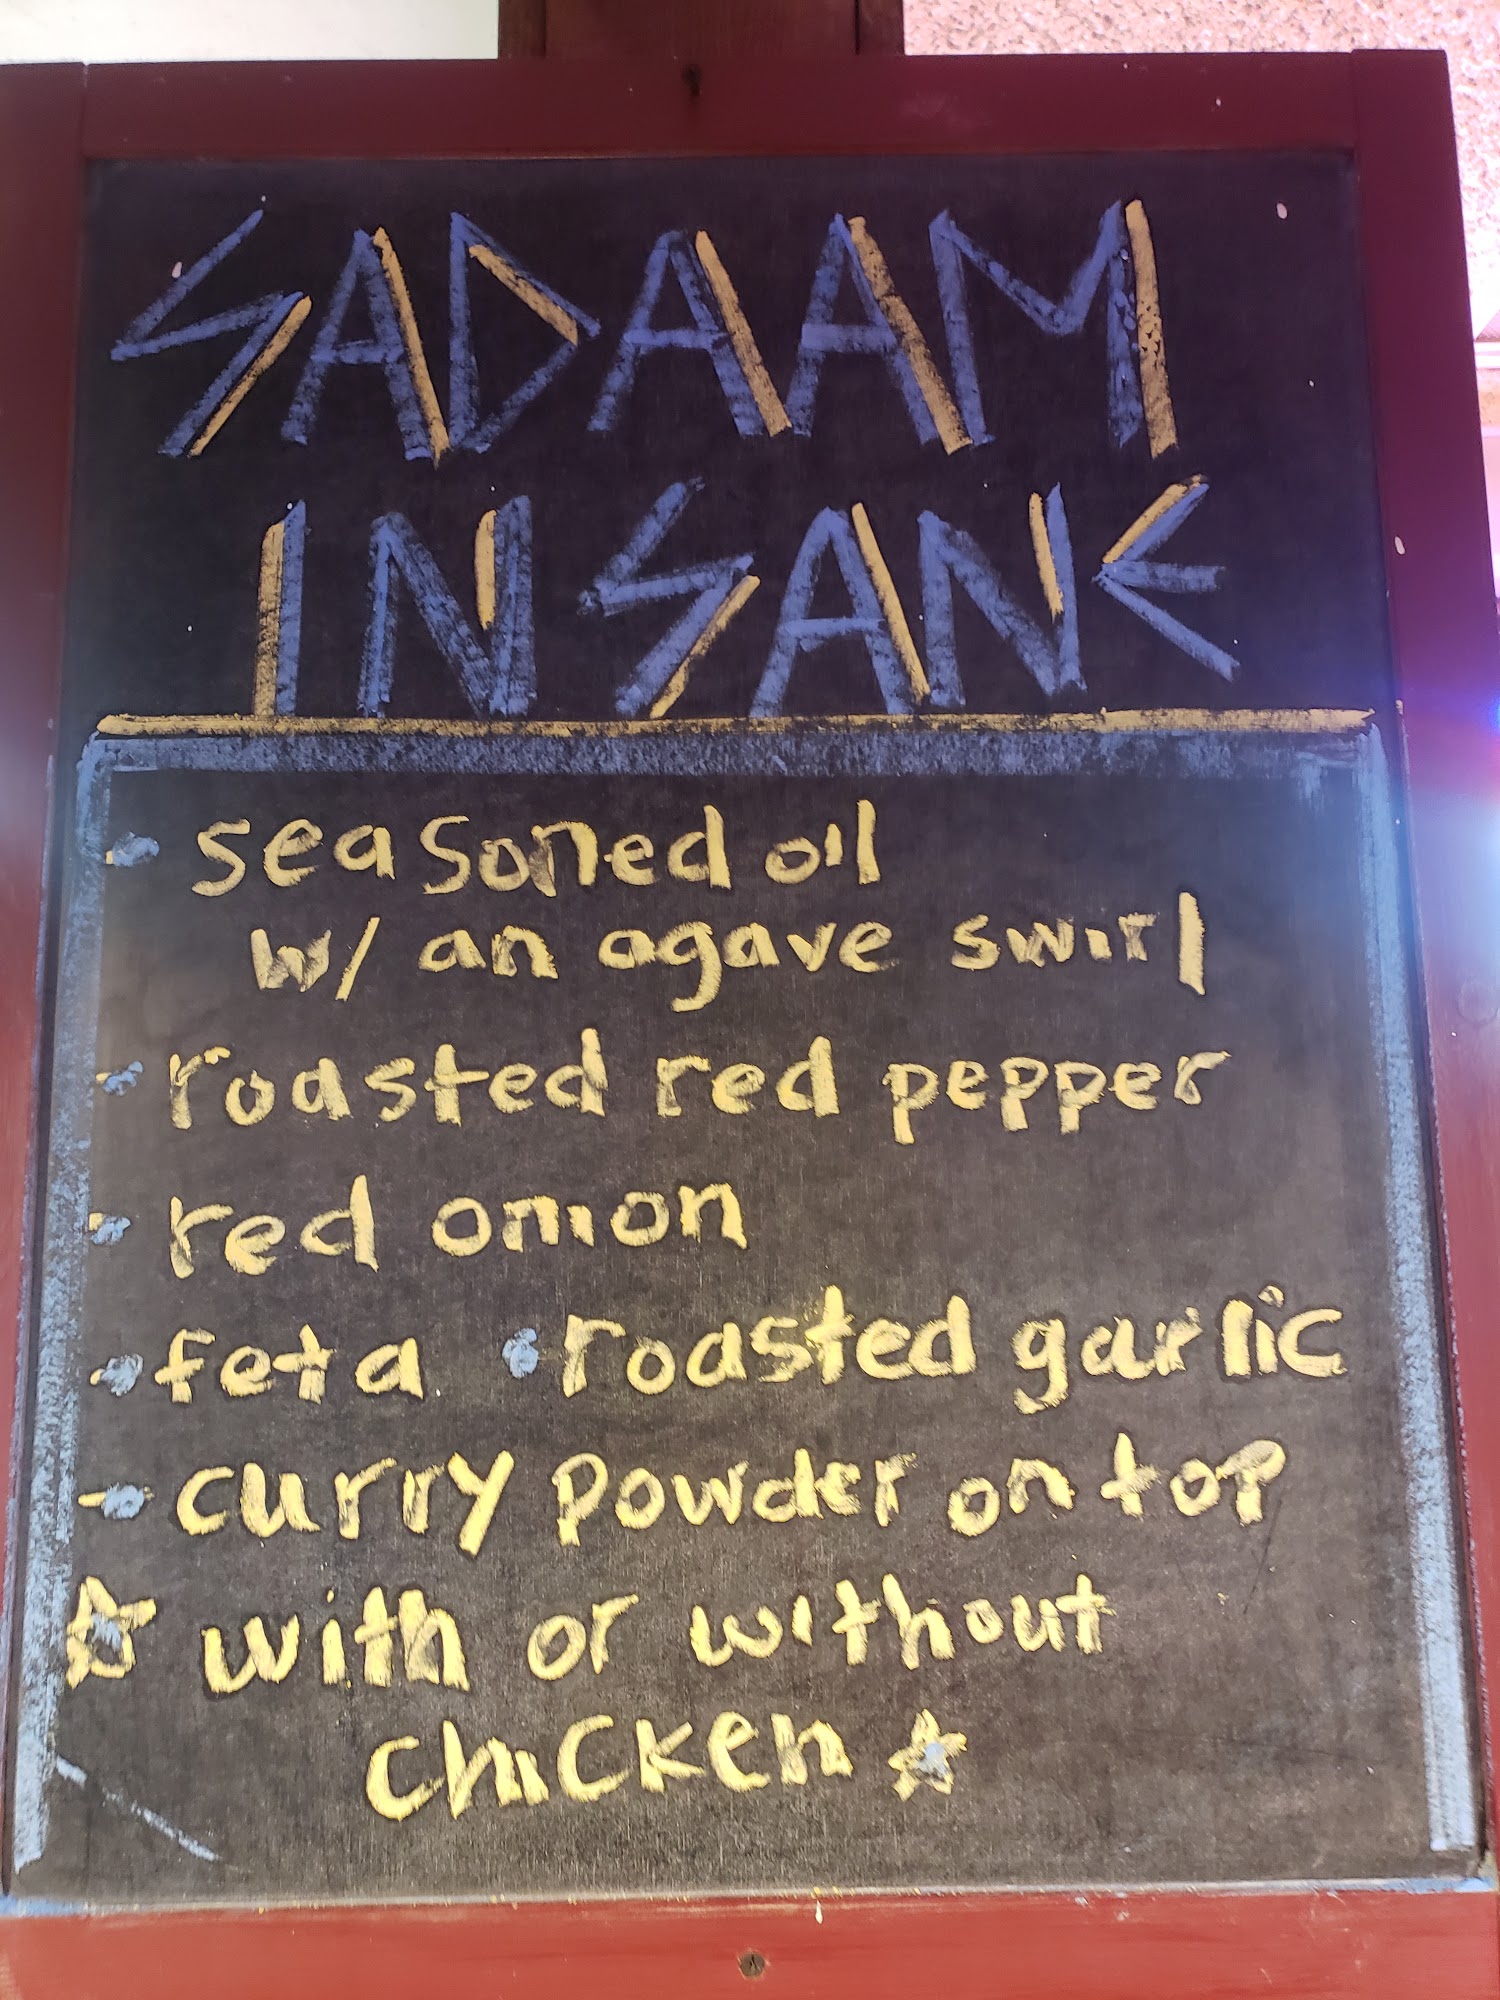 SADAAM
INSANE
• seasoned oil
w/ an agave swirl
• roasted red pepper
• red onion
• feta • roasted garlic
• curry powder on top
☆ with or without
chicken ☆